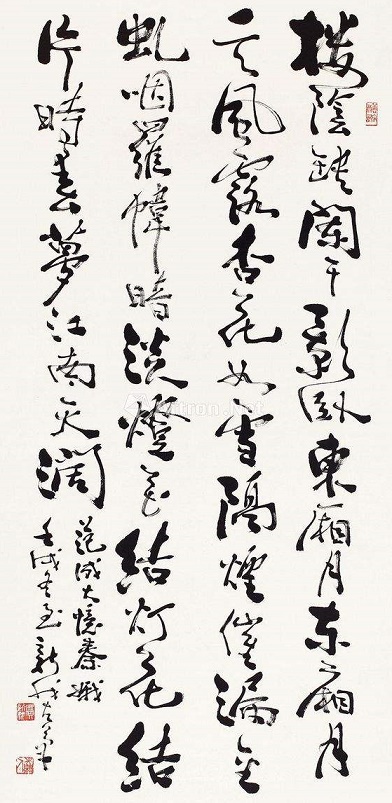 樓陰缺闌干影卧東廂月东廂月
一天風露杏花如雪隔煙催漏金
虬咽羅幃暗淡燈花結灯花結
片時春夢江南天闊
范成大憶秦娥
壬戌冬至新我左筆